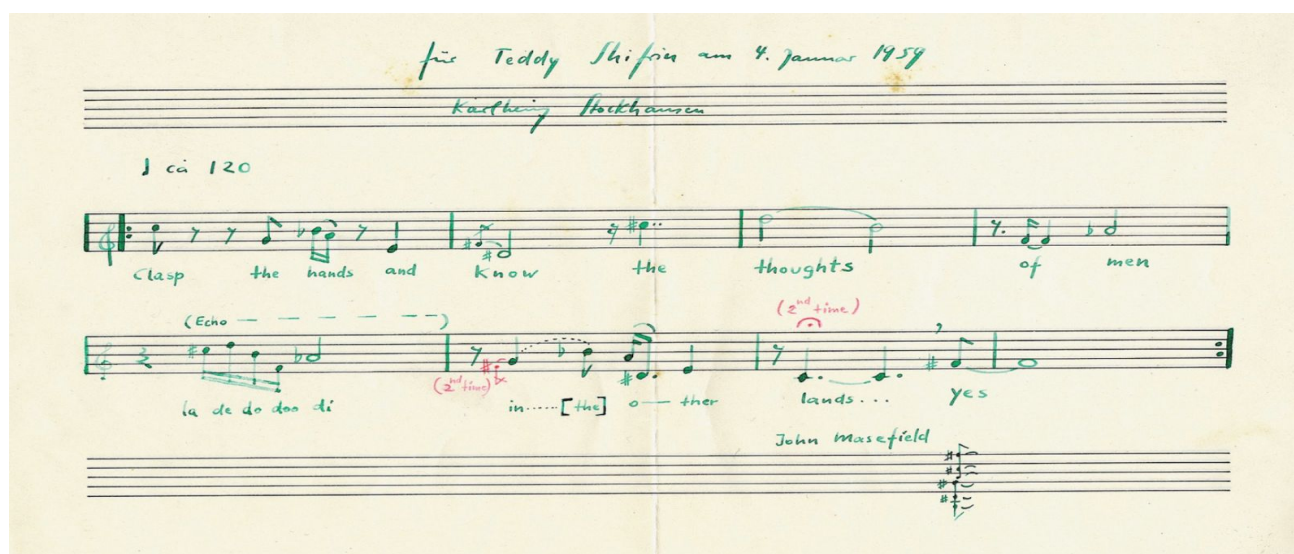 für Teddy Shifrin am 4. Januar 1959
Karlheinz Stockhausen
♩ ca 120
Clasp the hands and Know the thoughts of men
(Echo — — — — — )
(2nd time)
(2nd time)
la de do doo di in......[the] o — ther lands... yes
John Masefield